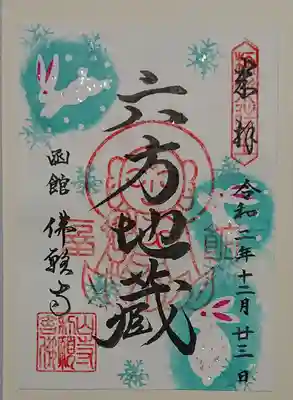 奉拝
令和二年十二月廿三日
六方地蔵
函館 佛願寺